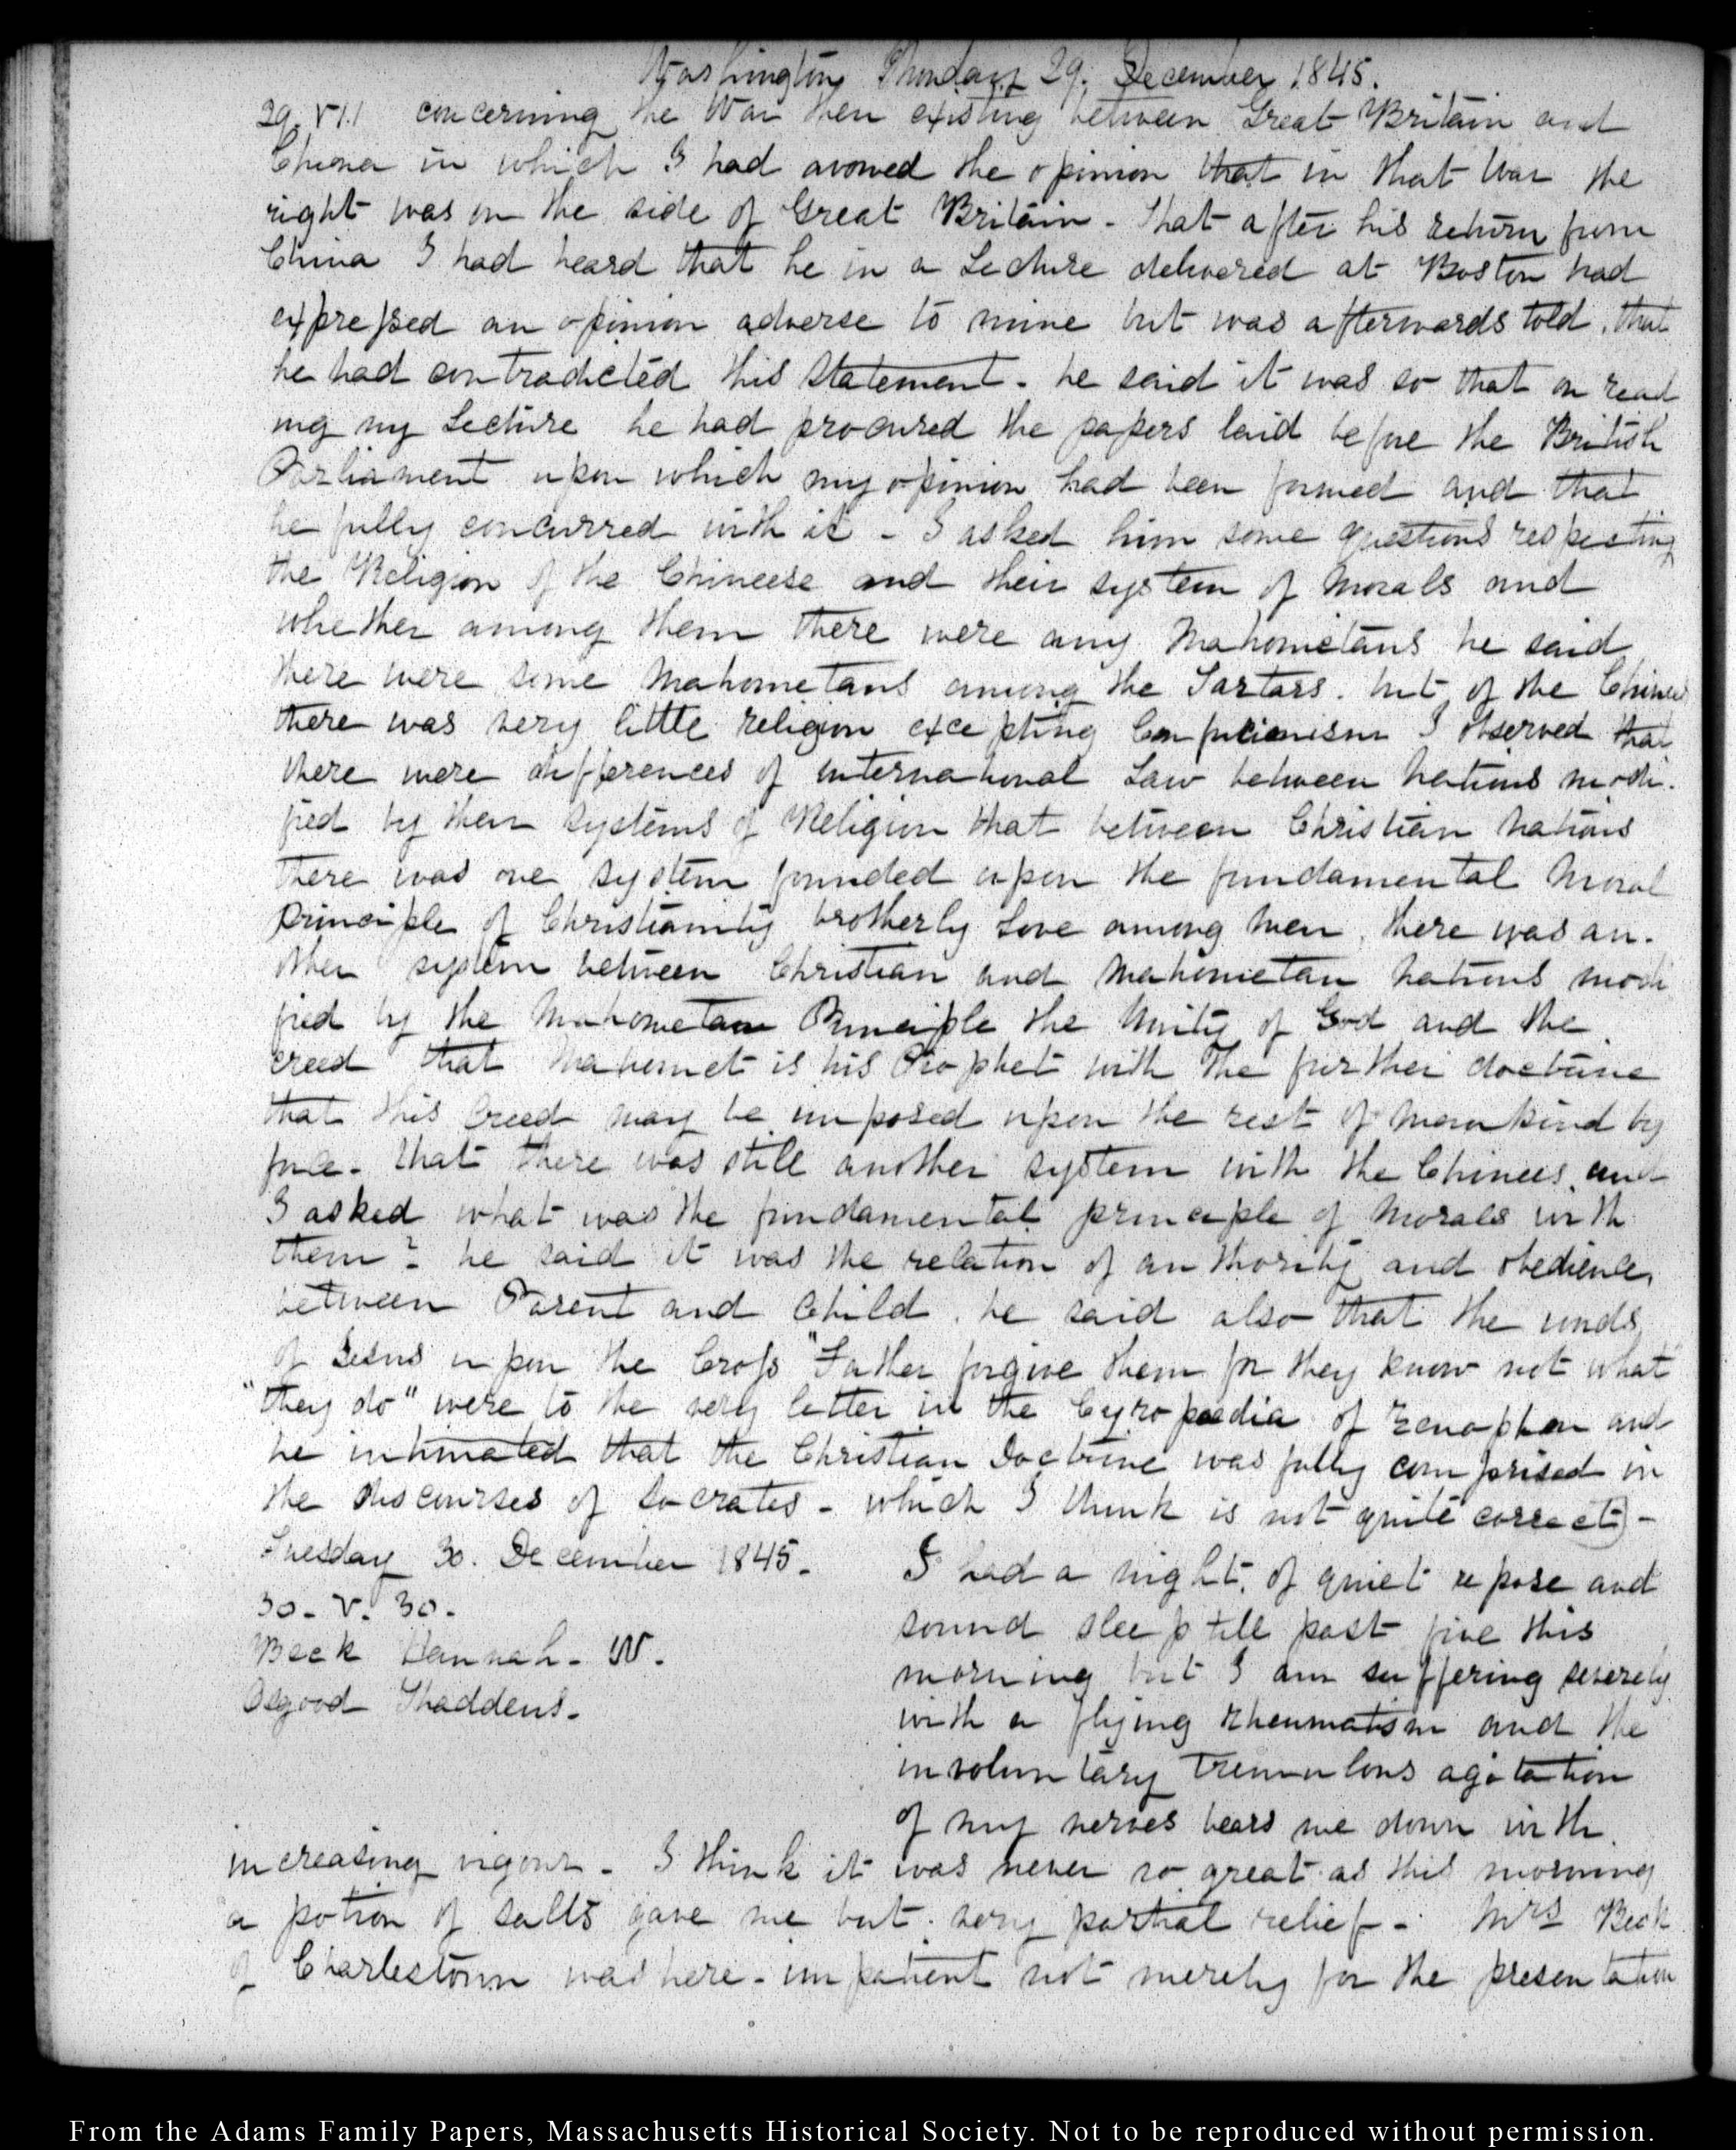 Washington Monday 29. December 1845.
29. VI.1 concerning the War then existing between Great Britain and
China in which I had avowed the opinion that in that War the
right was on the side of Great Britain - That after his return from
China I had heard that he in a Lecture delivered at Boston had
expressed an opinion adverse to mine but was afterwards told, that
he had contradicted this statement - he said it was so that on read
ing my Lecture he had procured the papers laid before the British
Parliament upon which my opinion had been formed and that
he fully concurred with it - I asked him some questions respecting
the Religion of the Chineese and their system of Morals and
whether among them there were any Mahometans he said
there were some Mahometans among the Tartars. but of the Chinese
there was very little religion excepting Confucionism I observed that
there were differences of international Law between Nations modi-
fied by their systems of Religion that between Christian Nations
there was one system founded upon the fundamental Moral
principle of Christianity brotherly Love among men, there was an-
other system between Christian and Mahometan Nations modi
fied by the Mahometan Principle the Unity of God and the
creed that Mahomet is his Prophet with the further doctrine
that this Creed may be imposed upon the rest of mankind by
force - that there was still another system with the Chinees, and
I asked what was the fundamental principle of Morals with
them? he said it was the relation of authority and obedience,
between Parent and Child. he said also that the words
of Jesus upon the Cross "Father forgive them for they know not what
"they do" were to the very letter in the Cyropaedia of Xenophon and
he intimated that the Christian Doctrine was fully comprised in
the discourses of Socrates - which I think is not quite correct) -
Tuesday 30. December 1845.
30 - V. 30.
Beck Hannah - W.
Osgood Thaddeus -
I had a night, of quiet repose and
sound sleep till past five this
morning but I am suffering severely
with a flying rheumatism and the
involuntary tremulous agitation
of my nerves bears me down with
increasing vigour - I think it was never so great as this morning
a potion of salts gave me but very partial relief - Mrs Beck
of Charlestown was here - impatient not merely for the presentation
From the Adams Family Papers, Massachusetts Historical Society. Not to be reproduced without permission.